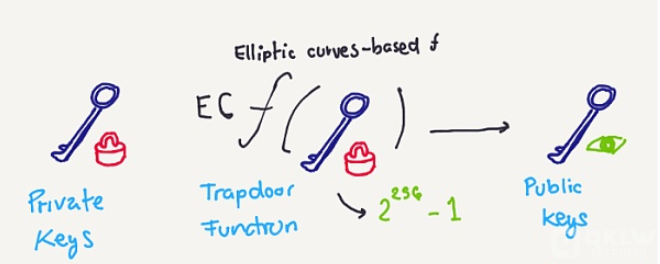 Elliptic curves-based f
EC f ( )
Private
Keys
Trapdoor
Function
2^256 - 1
Public
keys